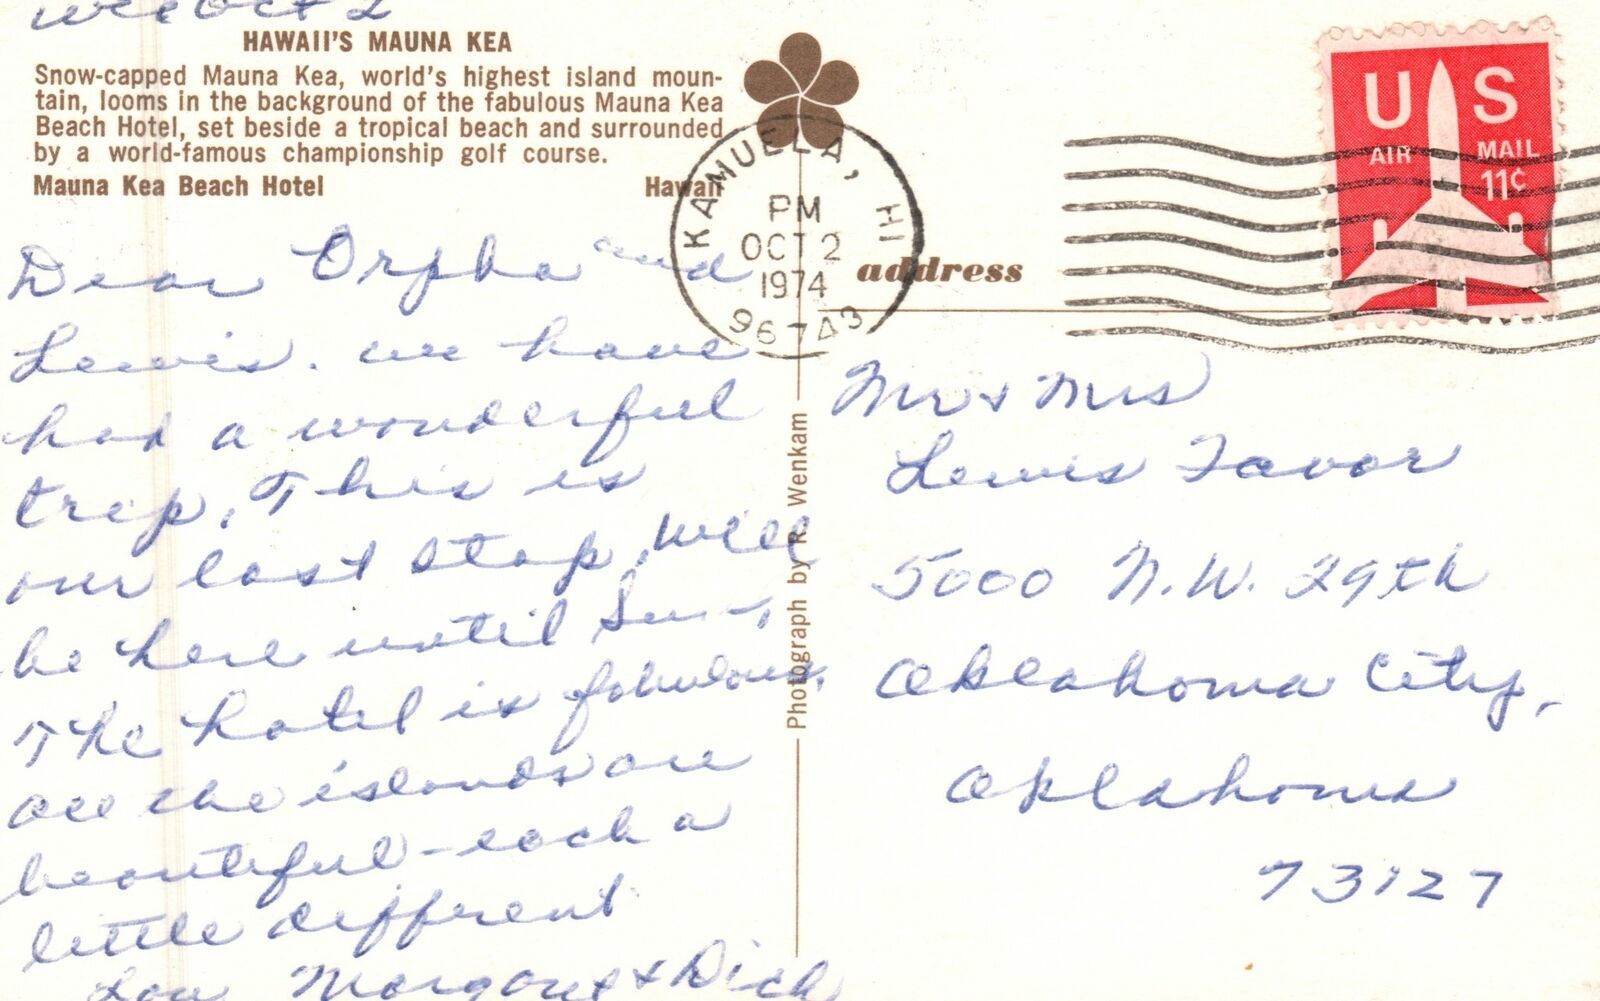 Wed Oct 2
HAWAII'S MAUNA KEA
Snow-capped Mauna Kea, world's highest island moun-
tain, looms in the background of the fabulous Mauna Kea
Beach Hotel, set beside a tropical beach and surrounded
by a world-famous championship golf course.
Mauna Kea Beach Hotel Hawaii
Dear Orpha and
Lewis. we have
had a wonderful
trip. This is
our last stop, will
be here until Sun.,
The hotel is fabulous,
all the islands are
beautiful - each a
little different
Love Margaret & Dick
Photograph by R. Wenkam
KAMUELA, HI
PM
OCT 2
1974
96743
address
US
AIR MAIL
11¢
Mr & Mrs
Lewis Favor
5000 N.W. 29th
Oklahoma City,
Oklahoma
73127